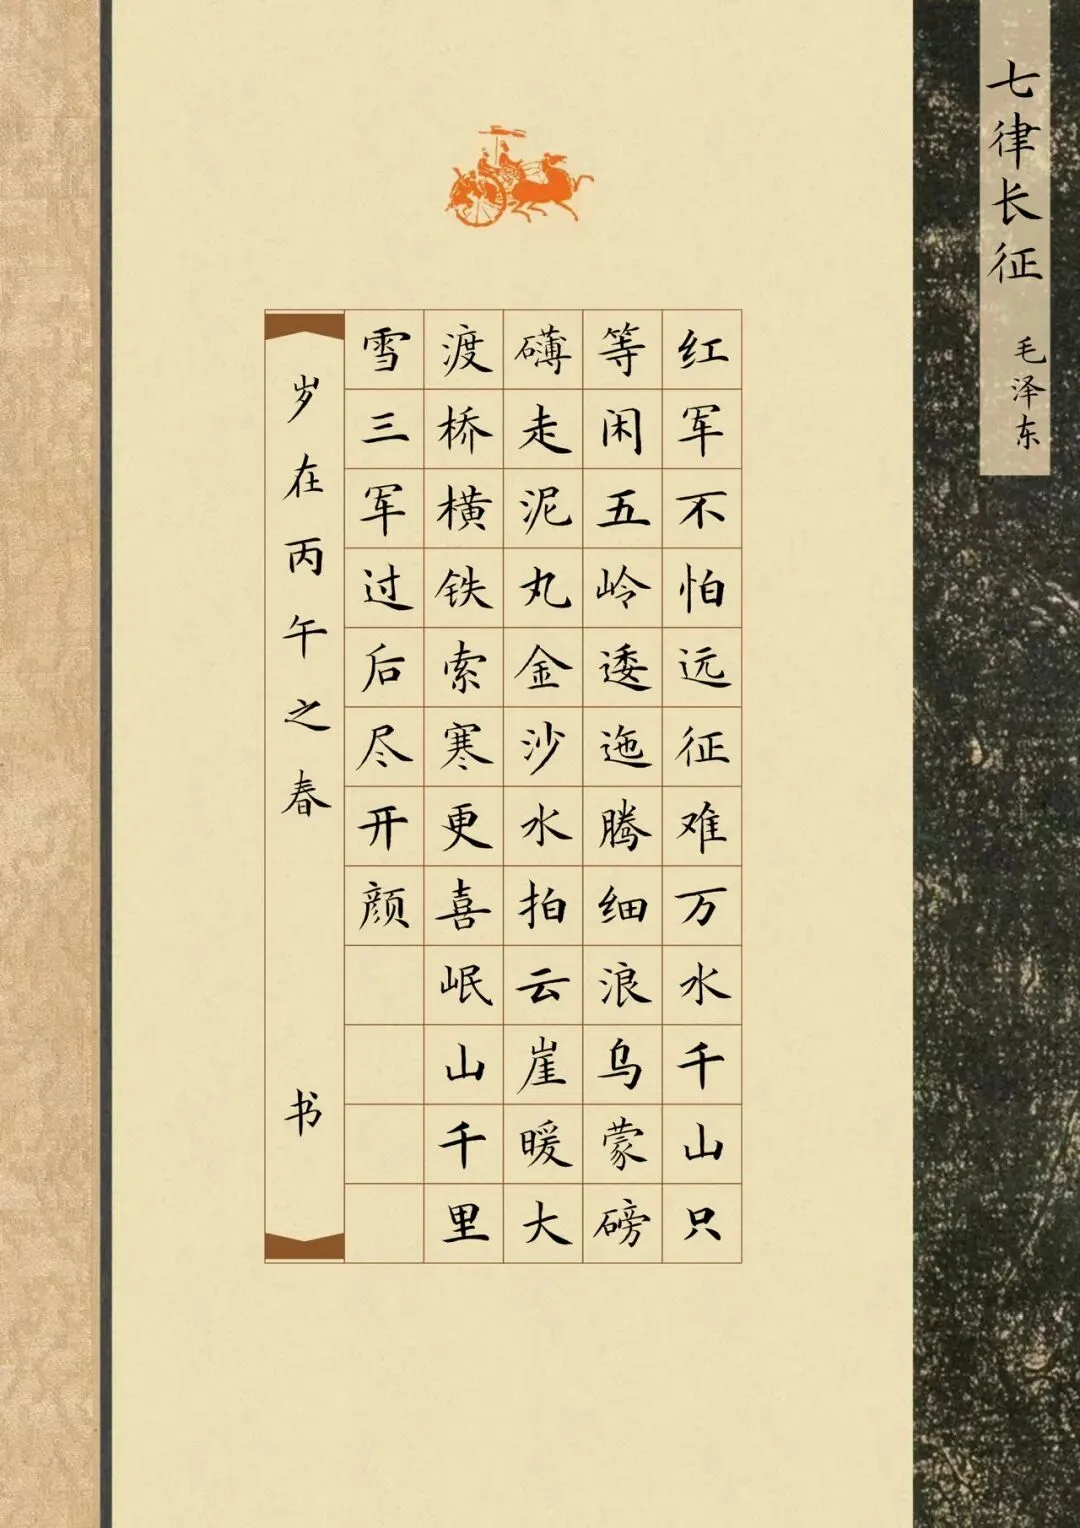 七律长征
毛泽东
红军不怕远征难万水千山只
等闲五岭逶迤腾细浪乌蒙磅
礴走泥丸金沙水拍云崖暖大
渡桥横铁索寒更喜岷山千里
雪三军过后尽开颜
岁在丙午之春 书